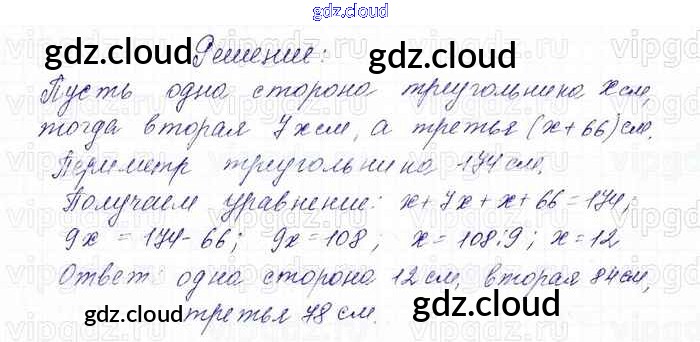 gdz.cloud
gdz.cloud Решение: gdz.cloud
Пусть одна сторона треугольника x см,
тогда вторая 7x см, а третья (x+66) см.
Периметр треугольника 174 см.
Получаем уравнение: x+7x+x+66=174;
9x = 174-66; 9x=108; x=108:9; x=12
Ответ: одна сторона 12 см, вторая 84 см,
gdz.cloud третья 78 см. gdz.cloud